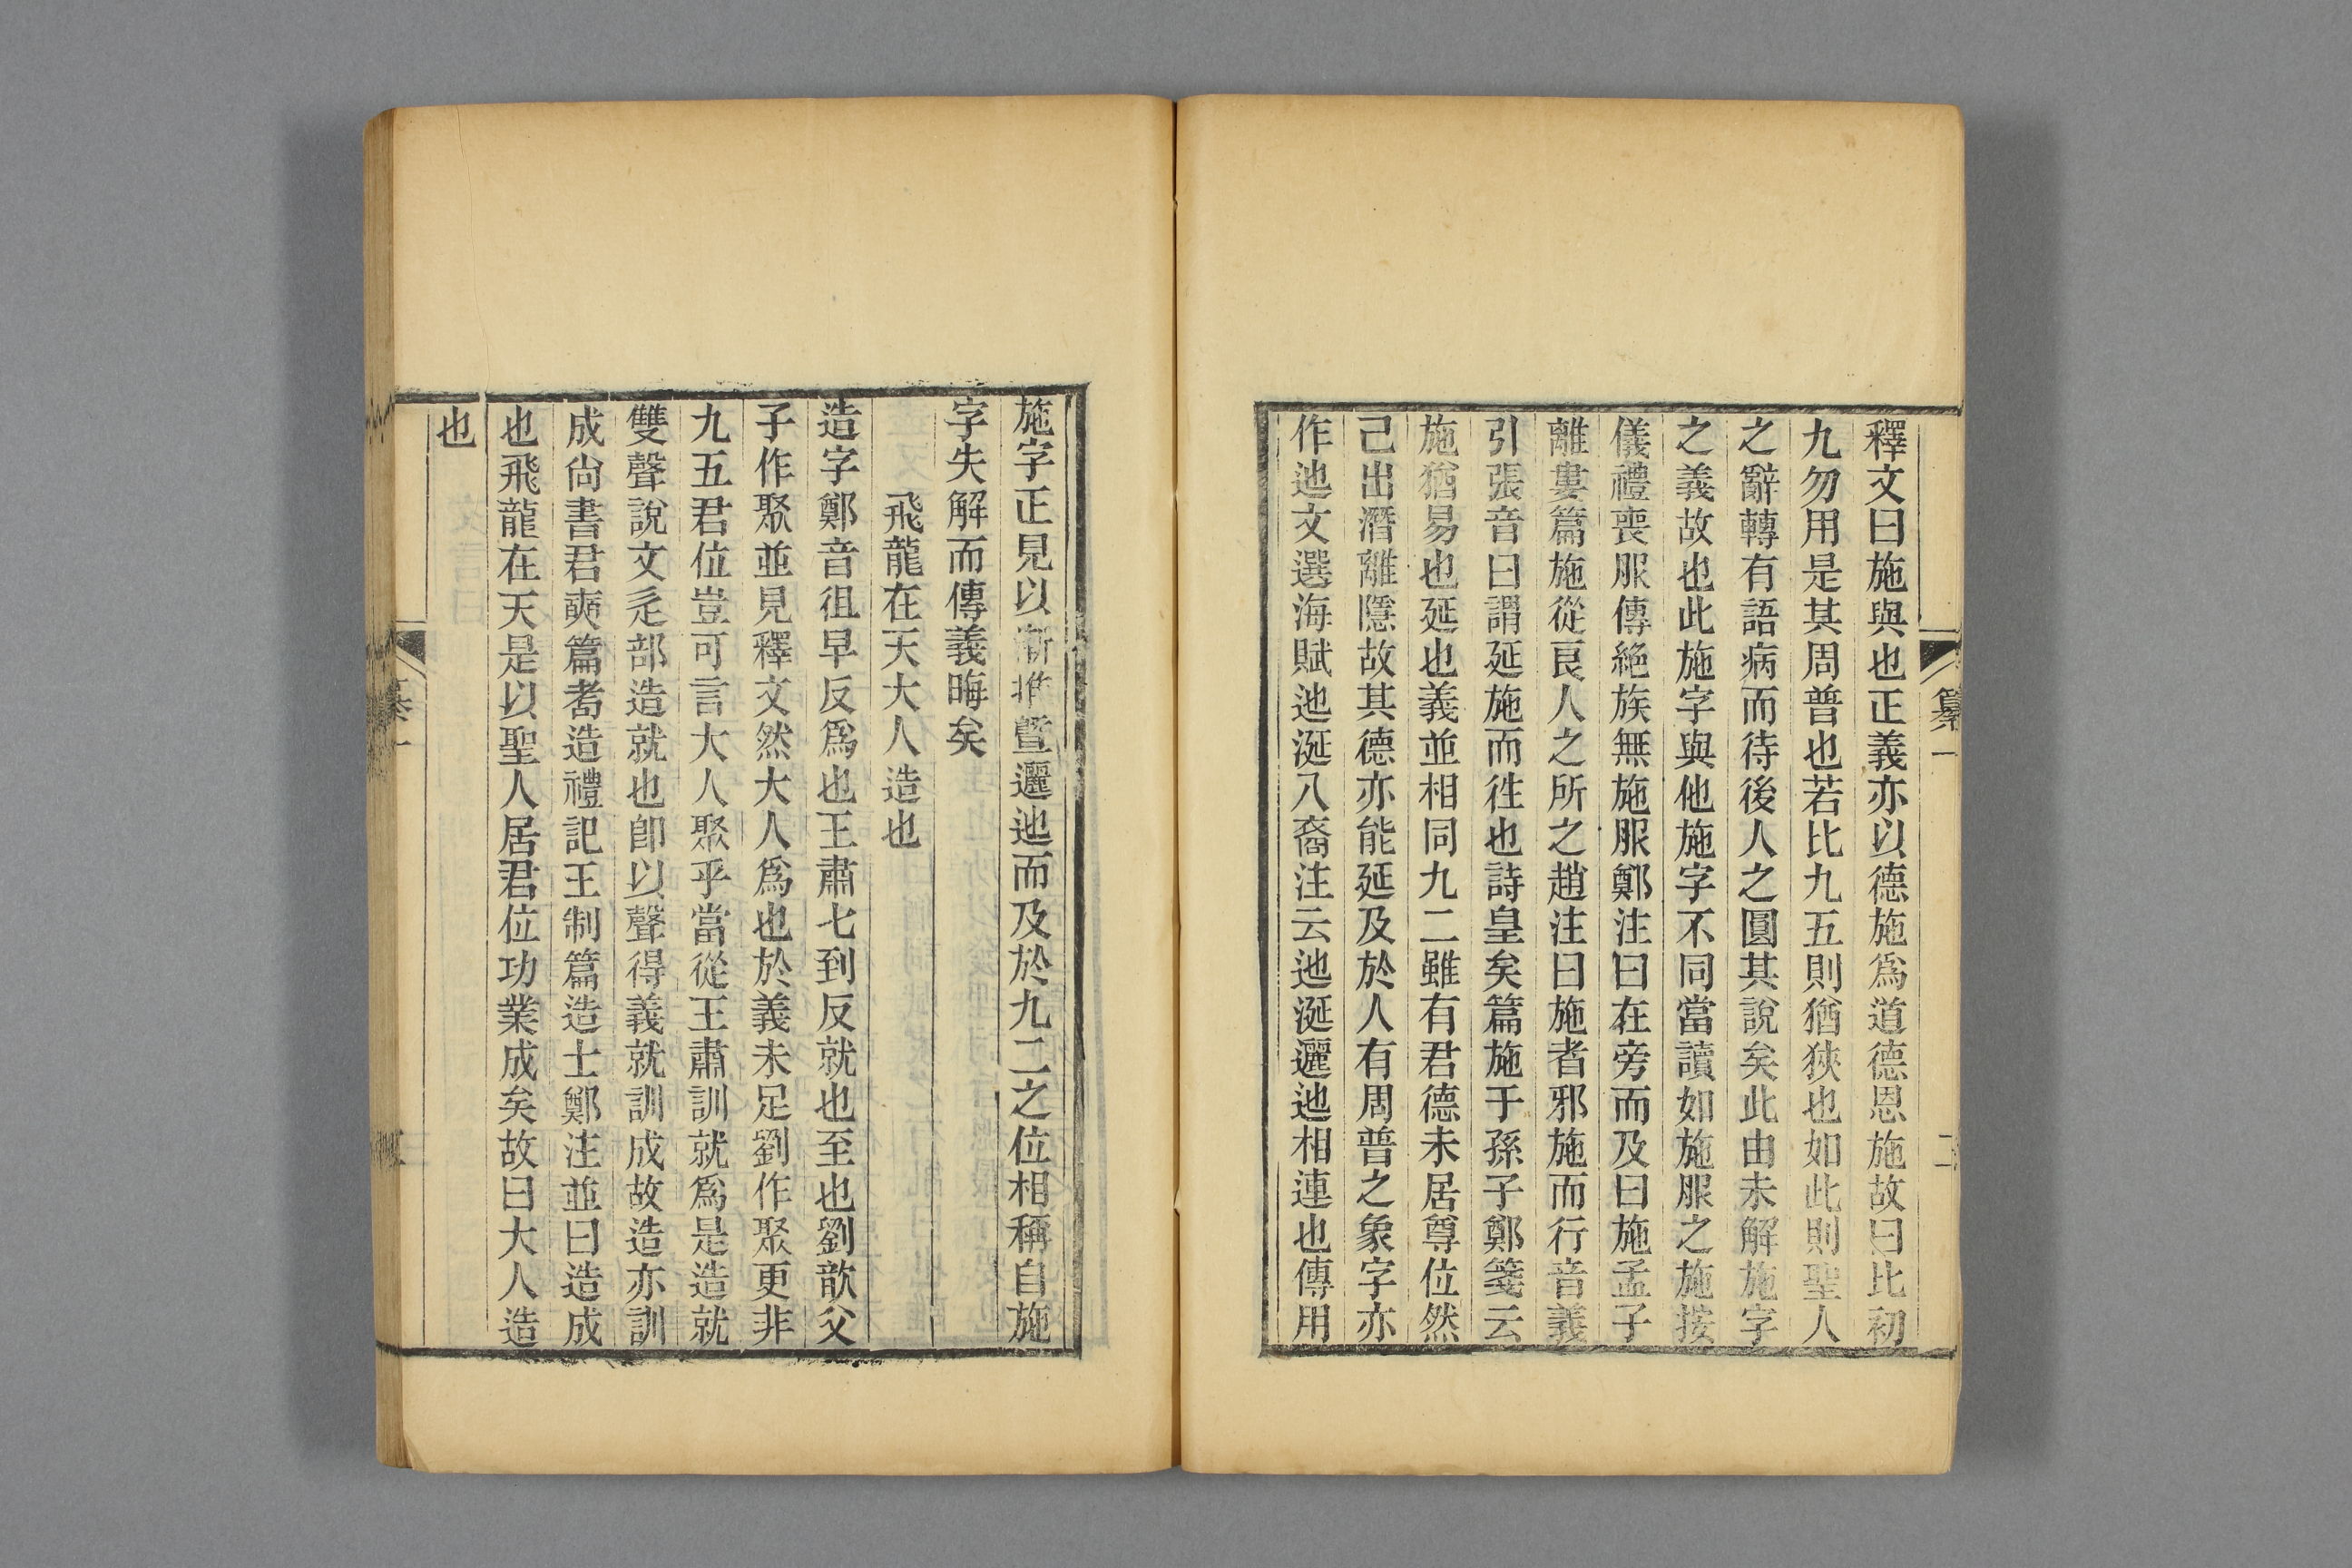 釋文曰施與也正義亦以德施爲道德恩施故曰比初
九勿用是其周普也若比九五則猶狹也如此則聖人
之辭轉有語病而待後人之圓其說矣此由未解施字
之義故也此施字與他施字不同當讀如施服之施按
儀禮喪服傳絶族無施服鄭注曰在旁而及曰施孟子
離婁篇施從良人之所之趙注曰施者邪施而行音義
引張音曰謂延施而徃也詩皇矣篇施于孫子鄭箋云
施猶易也延也義並相同九二雖有君德未居尊位然
己出潛離隱故其德亦能延及於人有周普之象字亦
作迆文選海賦迆涎八裔注云迆涎邐迆相連也傳用
纂一
二
施字正見以漸推暨邐迆而及於九二之位相稱自施
字失解而傳義晦矣
飛龍在天大人造也
造字鄭音徂早反爲也王肅七到反就也至也劉歆父
子作聚並見釋文然大人爲也於義未足劉作聚更非
九五君位豈可言大人聚乎當從王肅訓就爲是造就
雙聲說文辵部造就也卽以聲得義就訓成故造亦訓
成尙書君奭篇耇造禮記王制篇造士鄭注並曰造成
也飛龍在天是以聖人居君位功業成矣故曰大人造
也